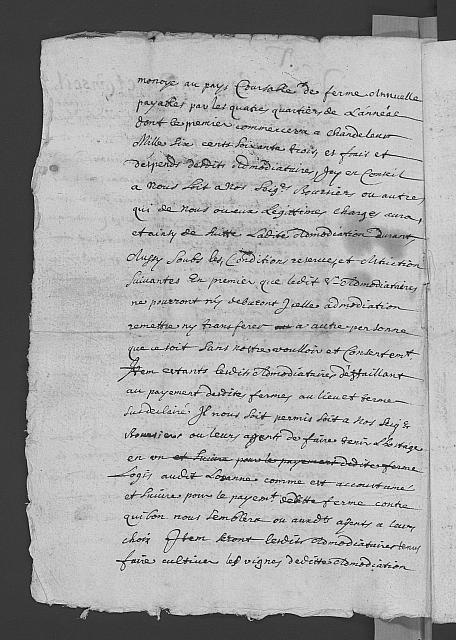 monoye au pays Coursable de ferme Annuelle
payables par les quatre quartiers de L'année
dont le premier commencera a chandeleur
Mille six cents soixante trois, et frais et
despends desdits Admodiataires, Icy en Conseil
a Nous soit a Nos Seigrs Boursiers ou autres
qui de Nous ou eux Legittimes charges aura,
et ainsy de suitte Ladite Admodiation durant
Aussy soubs les Conditions reserves, et
suivantes En premier que lesdits Admodiataires
ne pourront ny debvront Icelle admodiation
remettre ny transferer a autre personne
que ce soit sans nostre voulloir et Consentement
Item estants lesdits Admodiataires deffaillant
au payement desdites fermes au lieu et terme
sus declairé Il nous soit permis soit a Nos Seigrs
Boursiers ou leurs agent de faire tenir L'ostage
en un et suivre pour le payement desdites ferme
Logis audit Losanne comme est accoustumé
et suivre pour le payemt. desdites ferme contre
qui bon nous semblera ou auxdts agents a leurs
chois Item seront lesdits Admodiataires tenus
faire cultiver les vignes de ditte Admodiation